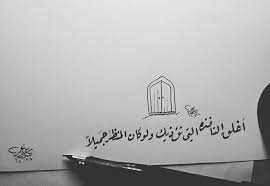 أغلق النافذة التي تؤذيك ولو كان المنظر جميلاً